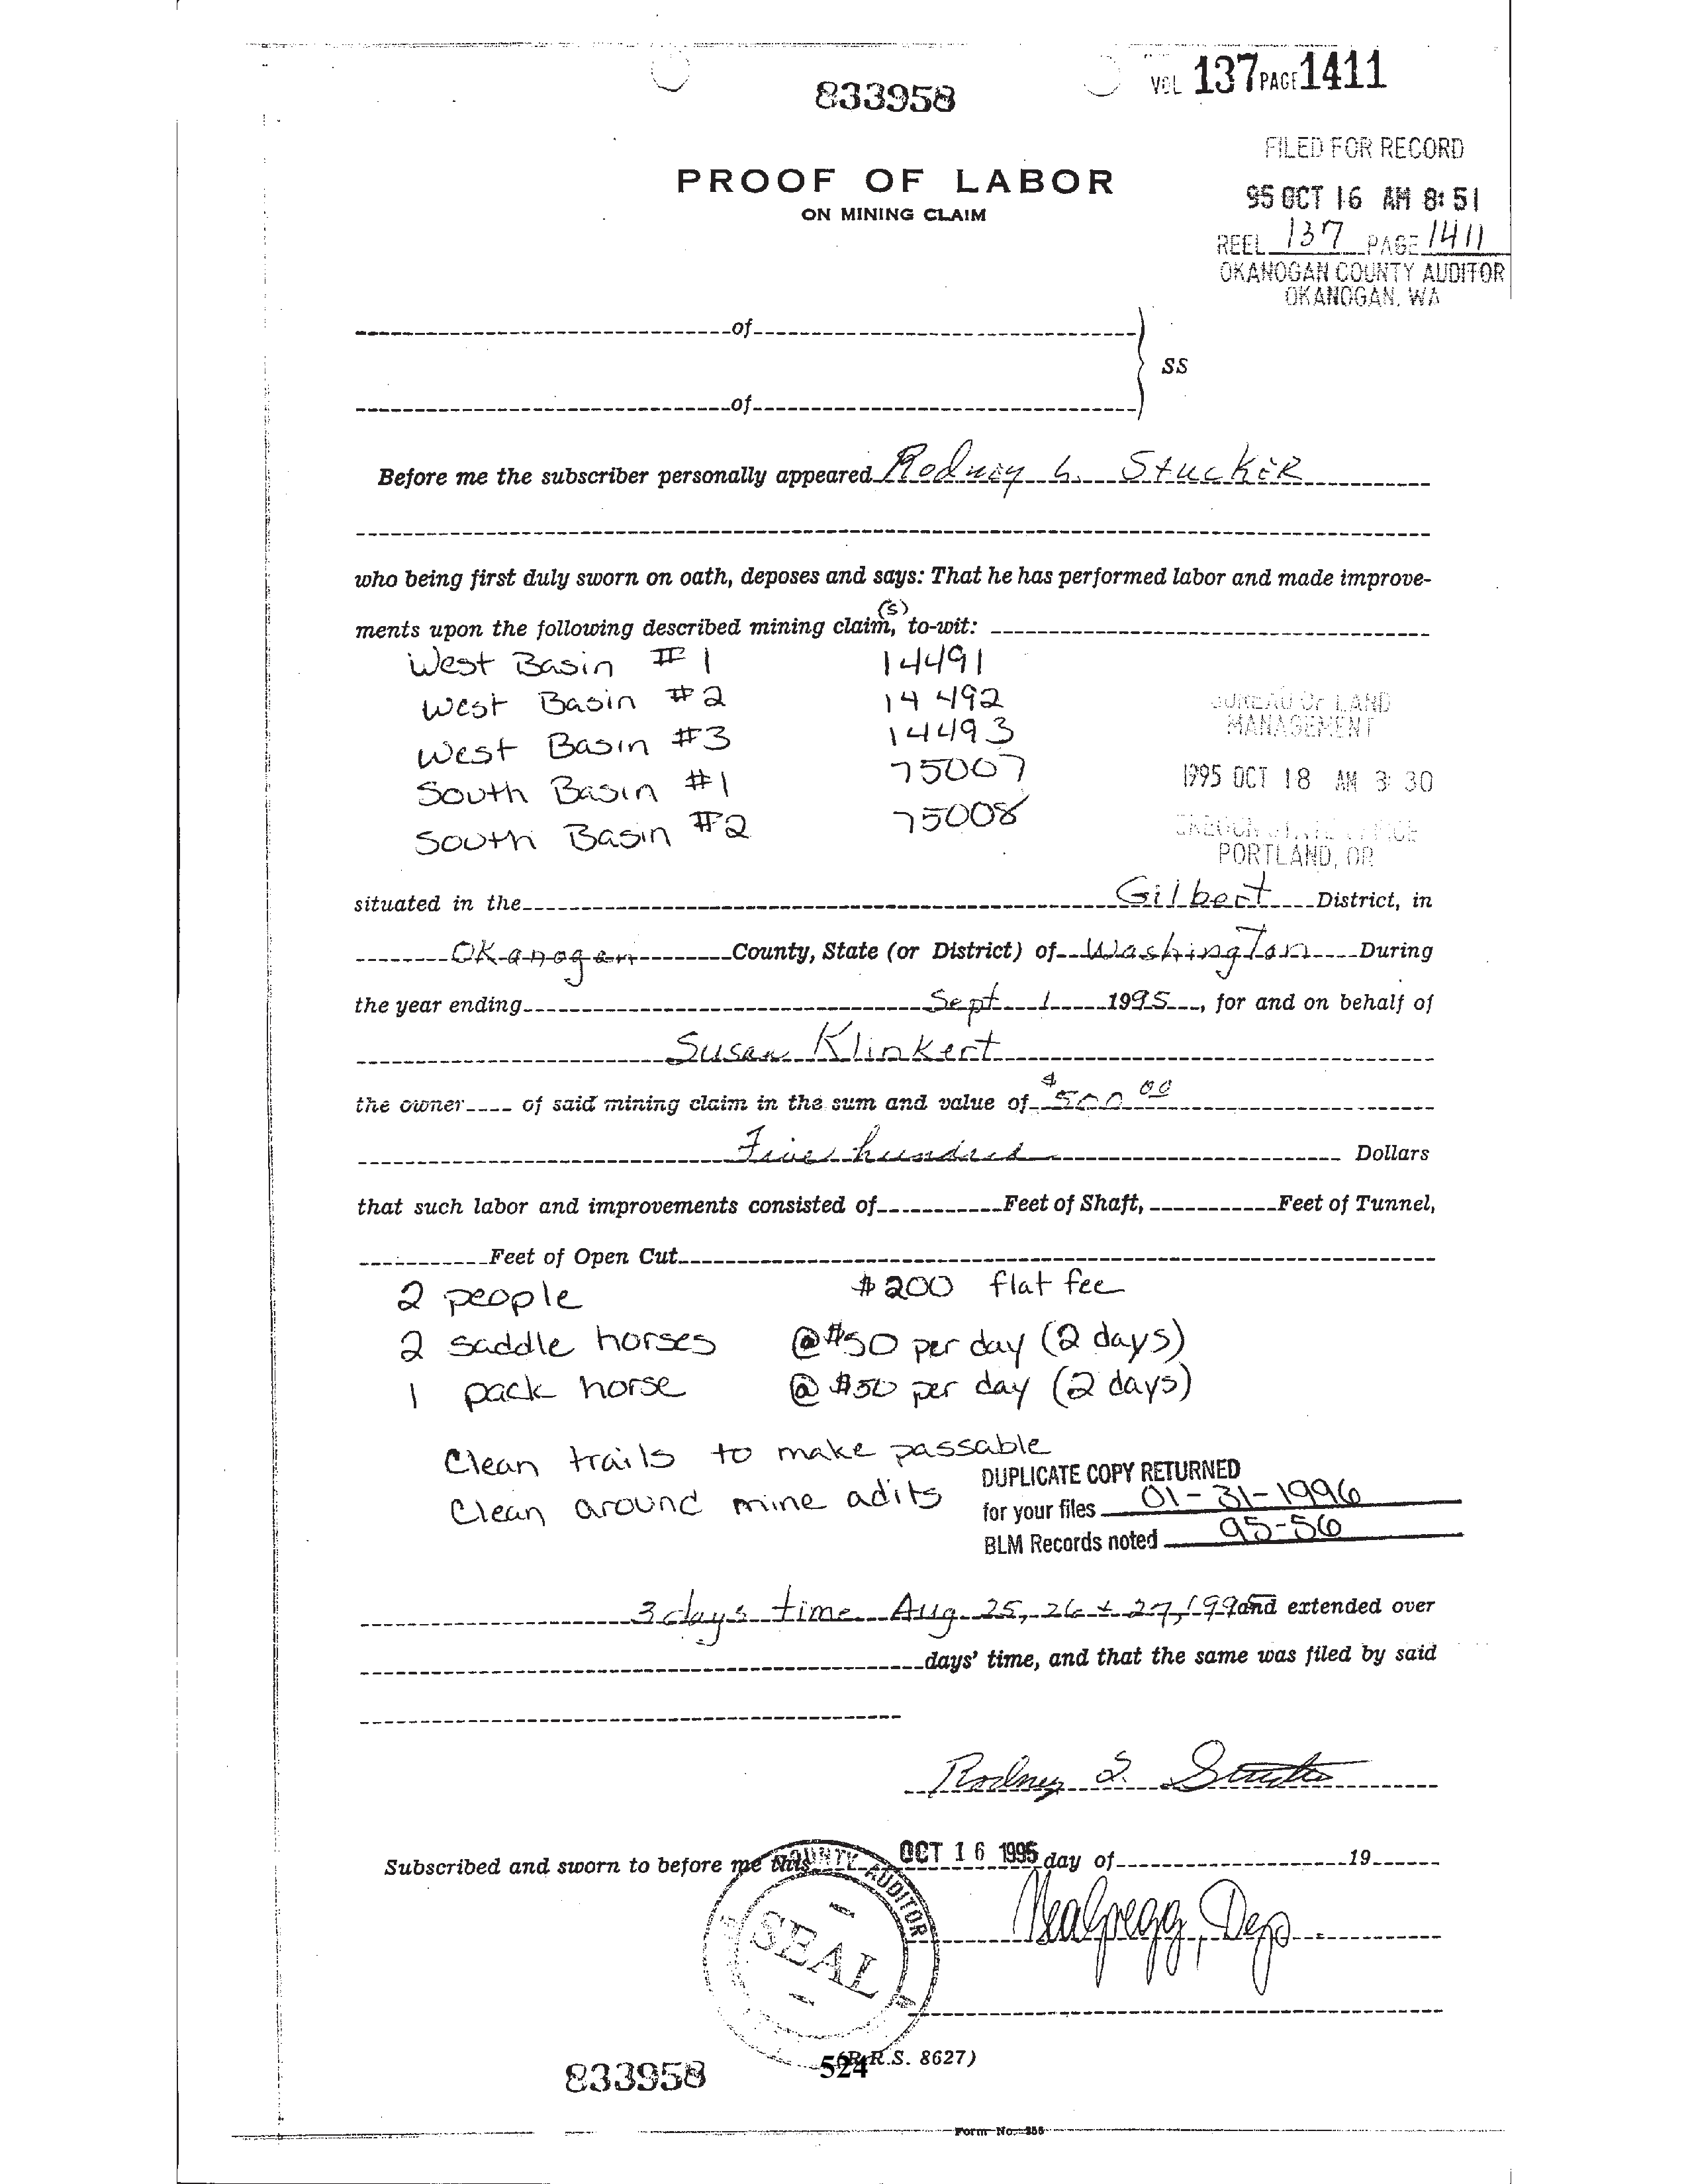 833958
VOL 137 PAGE 1411
FILED FOR RECORD
PROOF OF LABOR
ON MINING CLAIM
95 OCT 16 AM 8:51
REEL 137 PAGE 1411
OKANOGAN COUNTY AUDITOR
OKANOGAN, WA
of
SS
of
Before me the subscriber personally appeared Rodney L. Stucker
who being first duly sworn on oath, deposes and says: That he has performed labor and made improve-
ments upon the following described mining claim(s), to-wit:
West Basin #1 14491
West Basin #2 14492
West Basin #3 14493
South Basin #1 75007
South Basin #2 75008
BUREAU OF LAND
MANAGEMENT
1995 OCT 18 AM 8:30
OREGON STATE OFFICE
PORTLAND, OR
situated in the Gilbert District, in
Okanogan County, State (or District) of Washington During
the year ending Sept 1 1995, for and on behalf of
Susan Klinkert
the owner of said mining claim in the sum and value of $500.00
Five hundred Dollars
that such labor and improvements consisted of Feet of Shaft, Feet of Tunnel,
Feet of Open Cut
2 people $200 flat fee
2 saddle horses @ $50 per day (2 days)
1 pack horse @ $50 per day (2 days)
Clean trails to make passable
Clean around mine adits
DUPLICATE COPY RETURNED
for your files 01-31-1996
BLM Records noted 95-56
3 days time Aug 25, 26 + 27, 1995 and extended over
days' time, and that the same was filed by said
Rodney L. Stucker
Subscribed and sworn to before me this OCT 16 1995 day of 19
COUNTY AUDITOR
SEAL
Neal Gregg, Dep.
524 (R.R.S. 8627)
833958
Form No. 256